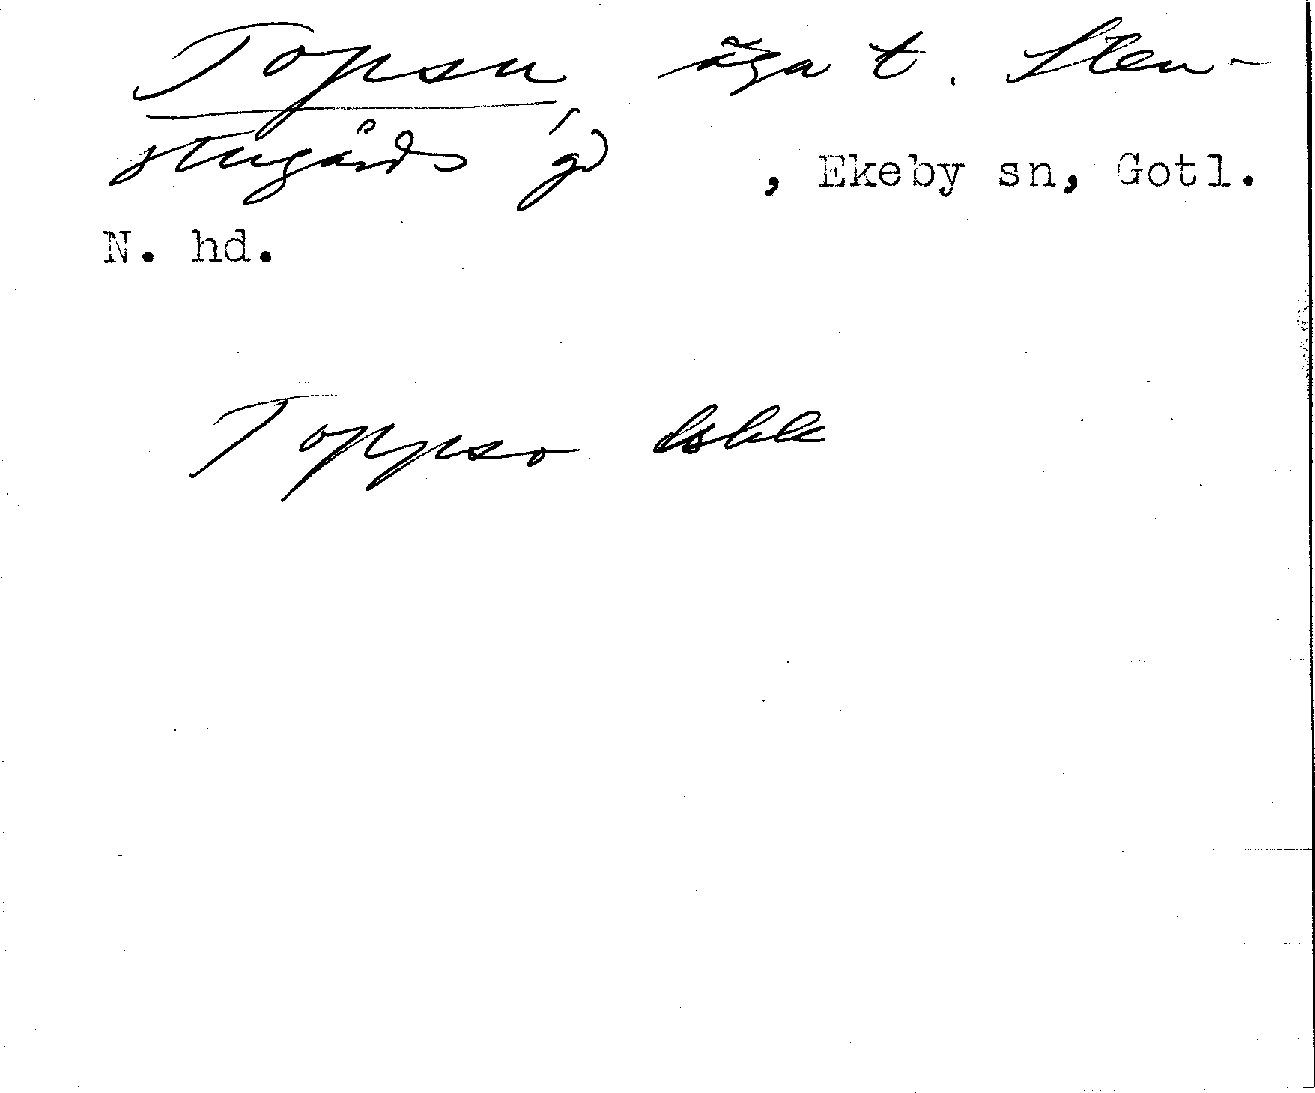 Topsu äga t. Sten-
stugårds gd, Ekeby sn, Gotl.
N. hd.
Toppso